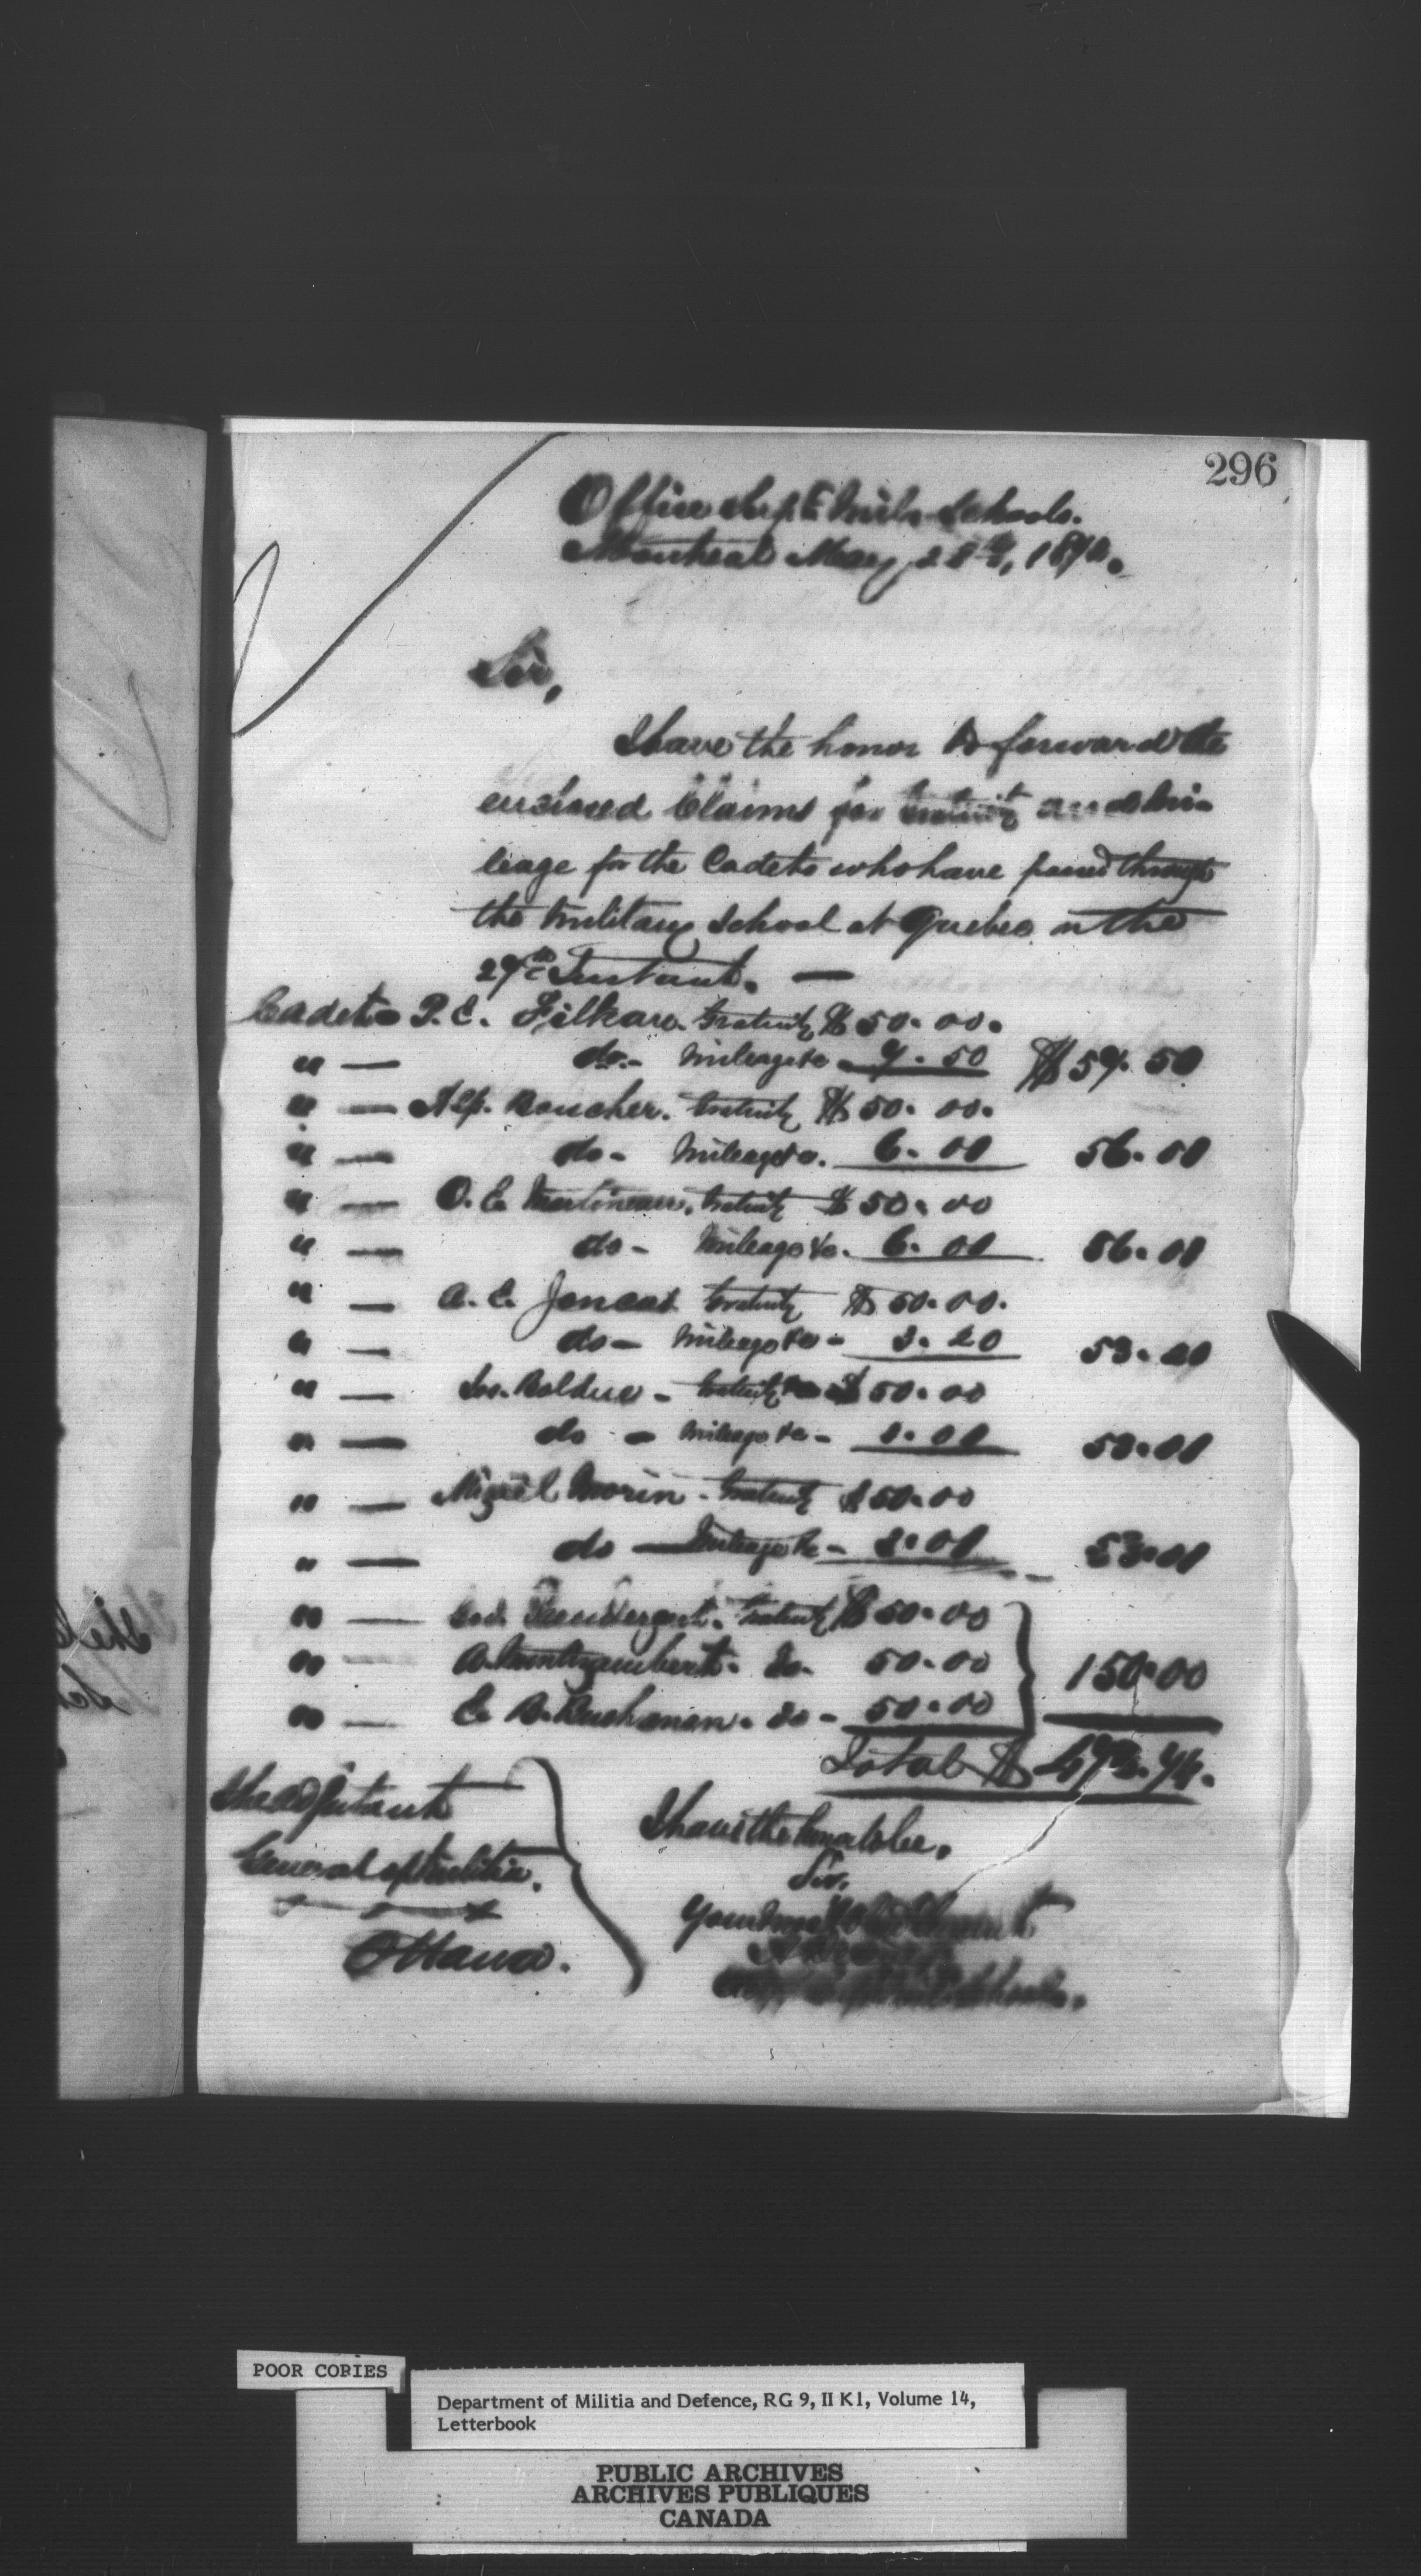 296
Office Supt Mil. Schools.
Montreal May 28th, 187
Sir,
I have the honor to forward the
enclosed Claims for Gratuity and Mi-
leage for the Cadets who have passed through
the Military School at Quebec on the
27th Instant. —
Cadet P. C. Gratuity $50.00.
" — do - Mileage &c - 7.50 $57.50
" — Alp. Boucher. Gratuity $50.00.
" — do - Mileage &c. 6.00 56.00
" — O. E. Martineau. Gratuity $50.00
" — do - Mileage &c. 6.00 56.00
" — A. E. Joncas Gratuity $50.00.
" — do - Mileage &c - 3.20 53.20
" — Jos. Bolduc - Gratuity $50.00
" — do - Mileage &c - .00 .00
" — Morin - Gratuity $50.00
" — do - Mileage &c - 3.00 53.00
" — Gratuity $50.00
" — A. Do. 50.00 150.00
" — E. B. Buchanan. do - 50.00
Total $
The Adjutant
General of Militia.
Ottawa.
I have the honor to be,
Sir,
Your most Obt Servant
Schools.
POOR COPIES
Department of Militia and Defence, RG 9, II K1, Volume 14,
Letterbook
PUBLIC ARCHIVES
ARCHIVES PUBLIQUES
CANADA